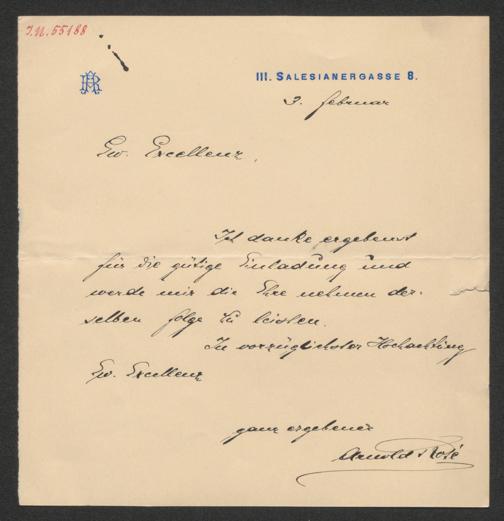 I.N. 55188
AR
III. SALESIANERGASSE 8.
3. Februar
Ew. Excellenz,
Ich danke ergebenst
für die gütige Einladung und
werde mir die Ehre nehmen der-
selben folge zu leisten.
In vorzüglichster Hochachtung
Ew. Excellenz
ganz ergebener
Arnold Rosé